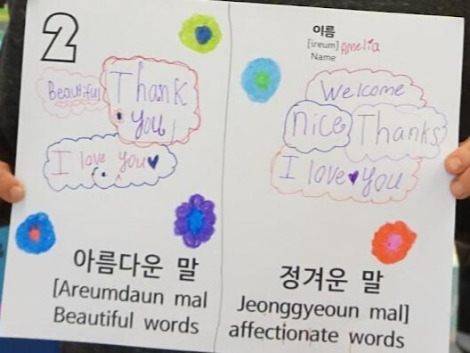 2
Beautiful
Thank
you!
I love you
아름다운 말
[Areumdaun mal
Beautiful words
이름
[ireum] Amelia
Name
Welcome
nice Thanks
I love you
정겨운 말
Jeonggyeoun mal]
affectionate words